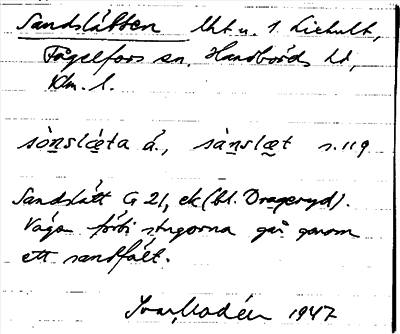 Sandslätten lht u. 1. Lickult,
Fågelfors sn, Handbörds hd,
Klm. l.
sònslæta á., sànslæt s. 119
Sandslätt G 21, ek (bl. Drageryd).
Vägen förbi stugorna går genom
ett sandfält.
Ivar Modéer 1947